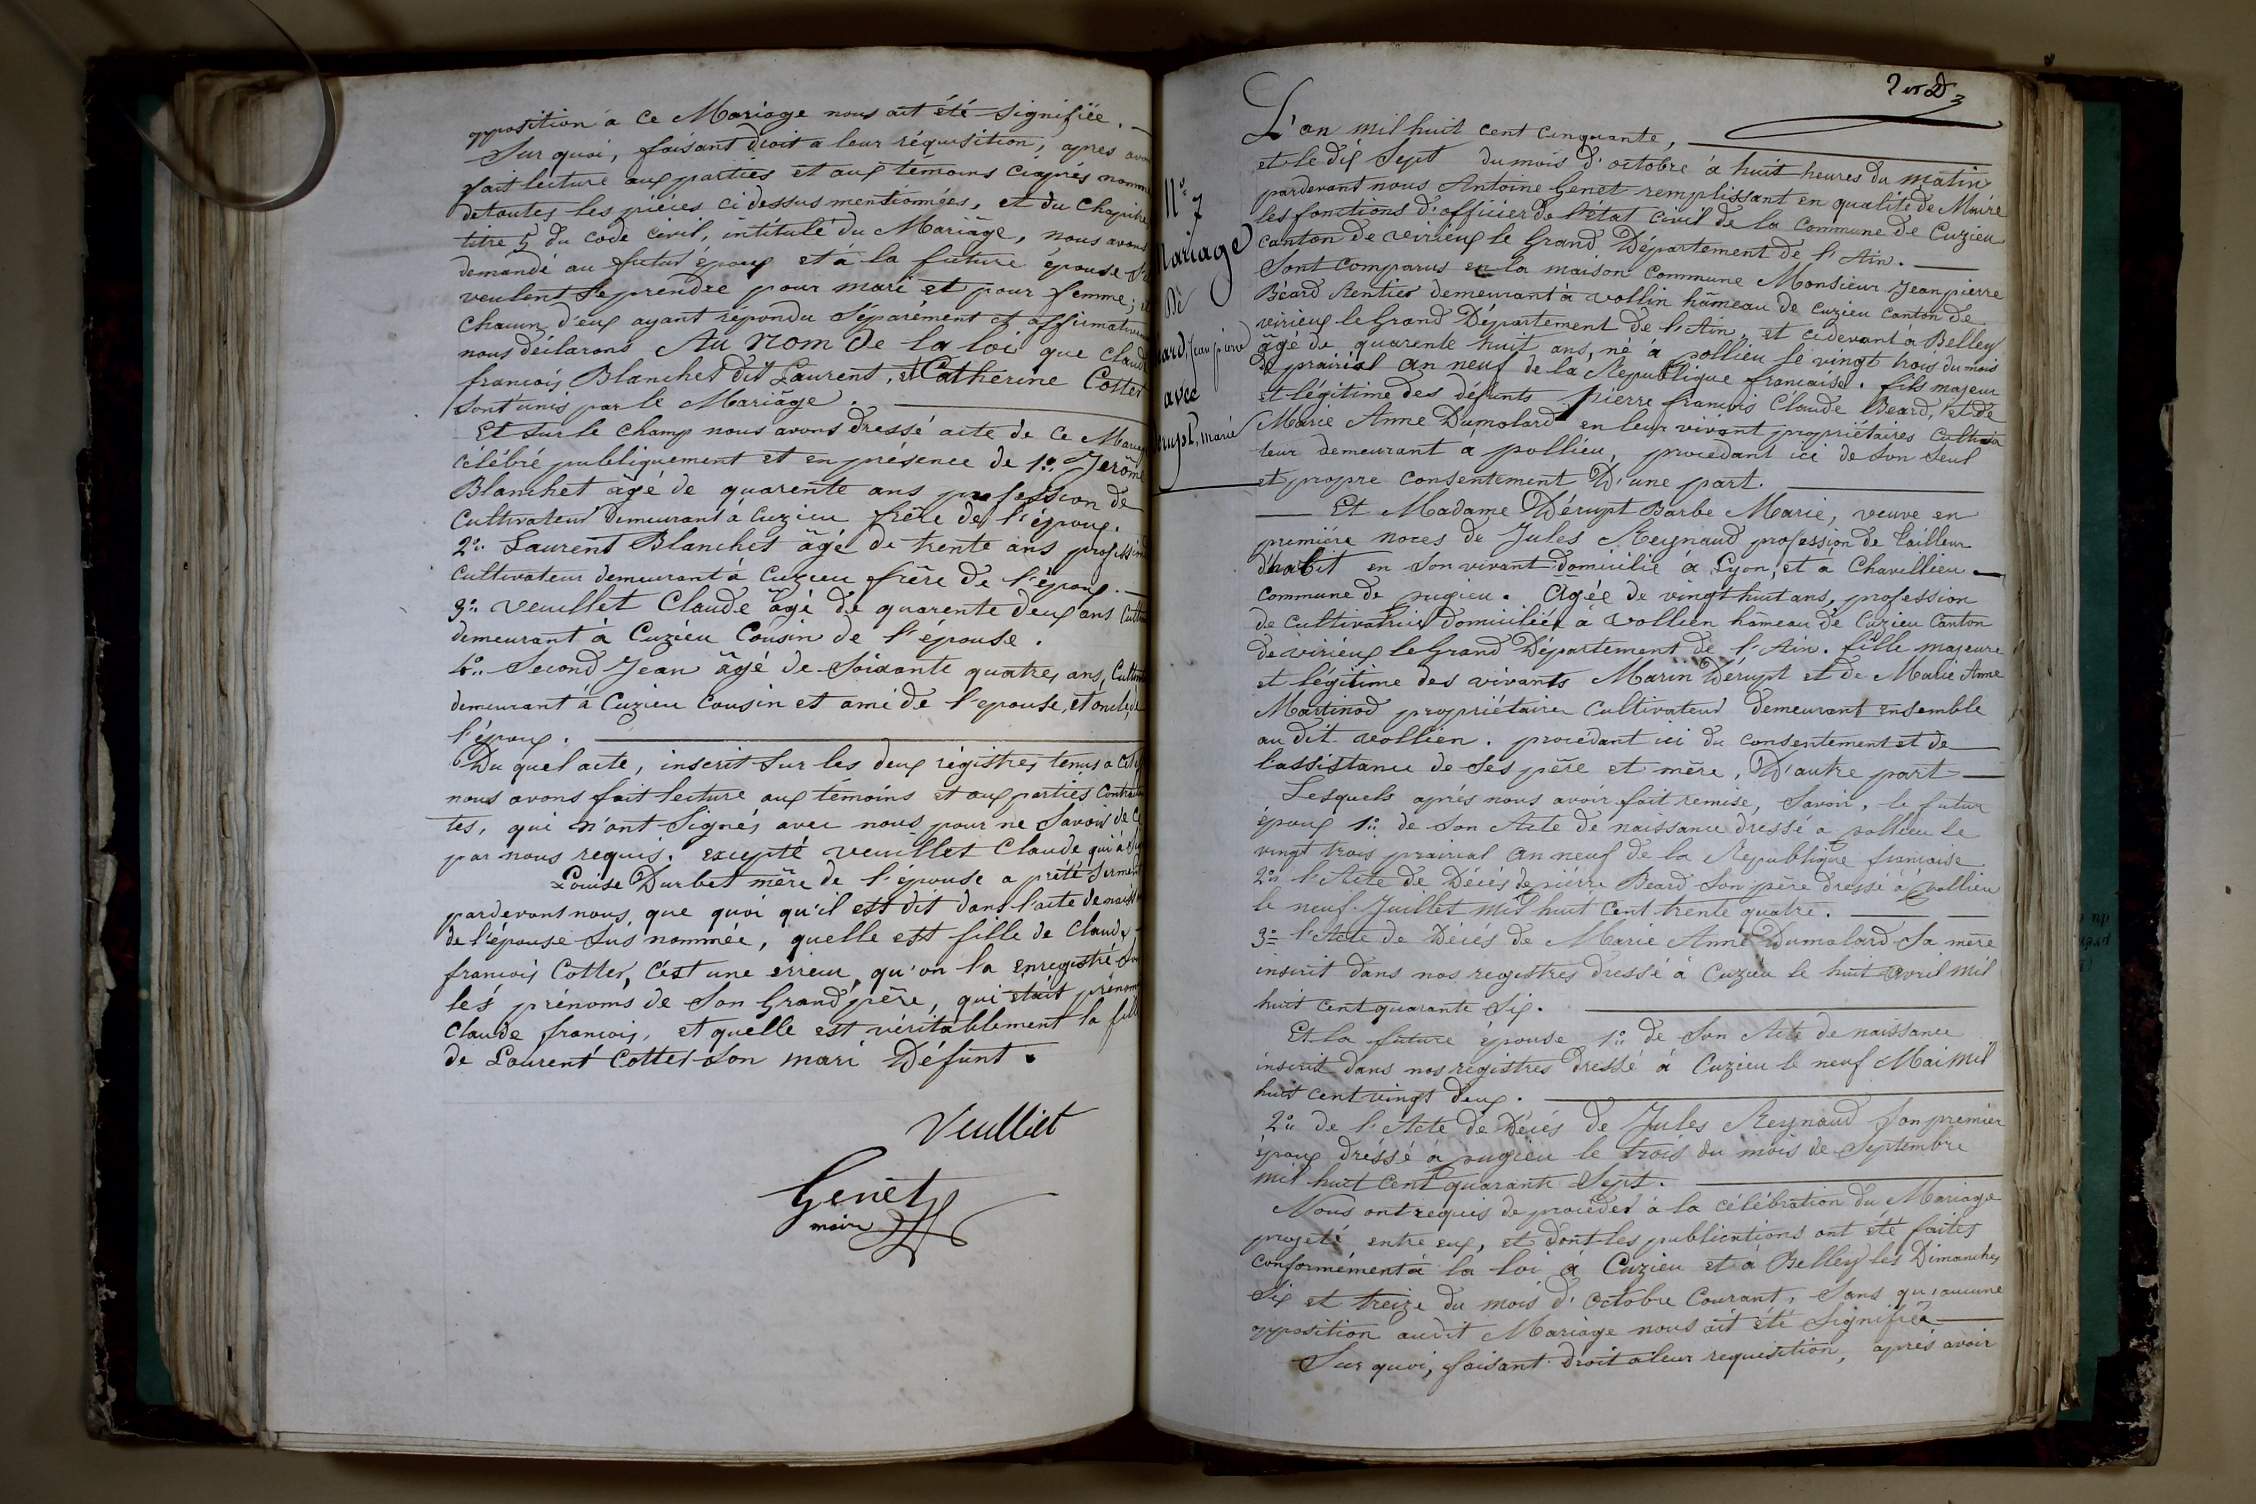 opposition à ce Mariage nous ait été signifiée.
Sur quoi, faisant droit a leur réquisition, apres avoi
fait lecture aux parties et aux temoins ciaprés nomme
detoutes les pièces ci dessus mentionnées, et du Chapitre
titre 5 du code civil, intitulé du Mariage, nous avons
demandé au futur époux et à la future épouse s'il
veulent se prendre pour mari et pour femme; et
chacun d'eux ayant repondu séparément et affirmativem
nous déclarons Au nom De la loi que Claude
françois Blanchet dit Laurent, et Catherine Cottet
sont unis par le Mariage.
Et sur le champ nous avons dressé acte de ce Mariage
célébré publiquement et en présence de 1o. Jerôme
Blanchet âgé de quarente ans profession de
Cultivateur demeurant à Cuzieu frère de l'époux.
2o. Laurent Blanchet âgé de trente ans profession
Cultivateur demeurant à Cuzieu frère de l'époux.
3o. Veuillet Claude âgé de quarente deux ans Cultiv
demeurant à Cuzieu Cousin de l'épouse.
4o. Second Jean âgé de soixante quatre, ans, Cultiv
demeurant à Cuzieu cousin et ami de l'epouse, et oncle de
l'époux.
Du quel acte, inscrit sur les deux régistres tenus a cet
nous avons fait lecture aux témoins et aux parties Contrac
tes, qui n'ont signés avec nous pour ne savoir de ce
par nous requis. excepté veuillet Claude qui a
Louise Durbet mère de l'epouse a prêté serment
pardevant nous, que quoi qu'il est dit dans l'acte de naiss
de l'épouse sus nommée, quelle est fille de Claude
françois Cotter, c'est une erreur, qu'on la enregistré sou
les prénoms de son Grand père, qui était prénom
Claude françois, et quelle est véritablement la fille
de Laurent Cottet son mari Défunt.
Veulliet
Genet
maire
L'an mil huit cent cinquante,
et le dix sept du mois d'octobre à huit heures du matin
pardevant nous Antoine Genet remplissant en qualité de Maire
les fonctions d'officier de l'état civil de la commune de Cuzieu
canton de virieux le Grand Département de l'Ain.
Sont comparus en la maison Commune Monsieur Jean pierre
Béard Rentier demeurant à vollin hâmeau de Cuzieu canton de
virieux le Grand Département de l'Ain, et cidevant à Belley
âgé de quarente huit ans, né à pollieu le vingt trois du mois
de prairial an neuf de la République francaise. fils majeur
et légitime des défunts Pierre francois Claude Béard, et de
Marie Anne Dumolard en leur vivant propriétaires Cultiva
teur demeurant à pollieu, procédant ici de son seul
et propre consentement D'une part.
No 7
Mariage
De
eard, Jean pierre
avec
erupt, marie
Et Madame Dérupt Barbe Marie, veuve en
première noces de Jules Reynaud profession de tailleur
d'habit en son vivant domicilié à Lyon, et à Chavillieu
commune de pugieu. Agée de vingt huit ans, profession
de cultivatrice domiciliée à Vollien hâmeau de Cuzieu Canton
de virieux le Grand Département de l'Ain. fille majeure
et légitime des vivants Marin Dérupt et de Marie Anne
Martinod propriétaires Cultivateurs demeurant ensemble
au dit vollien. procédant ici du consentement et de
l'assistance de ses père et mère, D'autre part
Lesquels aprés nous avoir fait remise, savoir, le futur
époux 1o. de son Acte de naissance dressé a pollieu le
vingt trois prairial an neuf de la Republique francaise
2o. l'Acte de Décés de pierre Beard son père dressé à pollieu
le neuf Juillet mil huit cent trente quatre.
3o. l'Acte de Décés de Marie Anne Dumolard sa mère
inscrit dans nos registres dressé à Cuzieu le huit avril mil
huit cent quarante six.
Et la future épouse 1o. de son Acte de naissance
inscrit dans nos régistres dressé à Cuzieu le neuf Mai mil
huit cent vingt deux.
2o. de l'Acte de Décés de Jules Reynaud son premier
époux dréssé à pugieu le trois du mois de Septembre
mil huit cent quarante Sept.
Nous ont requis de procéder à la célébration du Mariage
projeté entre eux, et dont les publications ont été faites
conformément à la loi a Cuzieu et à Belley les Dimanches
Six et treize du mois d'octobre Courant, sans qu'aucune
opposition audit Mariage nous ait été signifiée
Sur quoi, faisant droit a leur requisition, aprés avoir